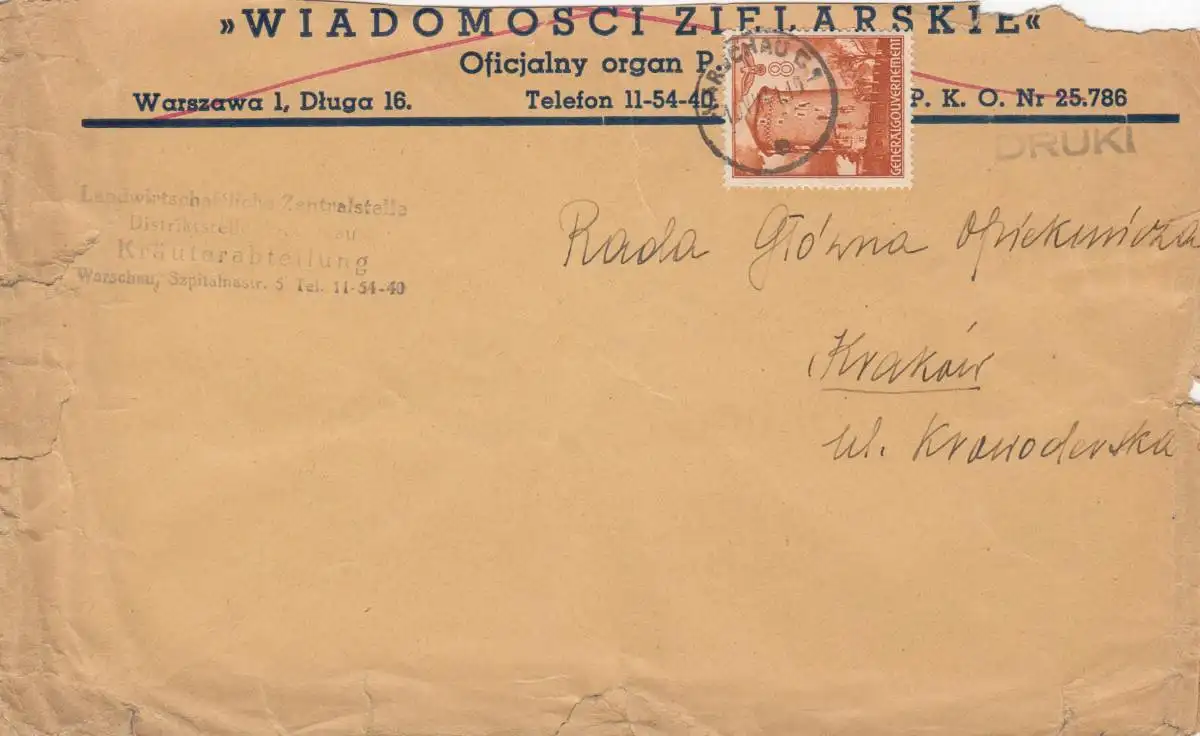 »WIADOMOSCI ZIELARSKIE«
Oficjalny organ P
Warszawa 1, Długa 16. Telefon 11-54-40 P. K. O. Nr 25.786
WARSCHAU C1
8
GENERALGOUVERNEMENT
DRUKI
Landwirtschaftliche Zentralstelle
Distriktstelle
Kräuterabteilung
Warschau, Szpitalnastr. 5 Tel. 11-54-40
Rada Główna Opiekuńcza
Kraków
ul. Krowoderska